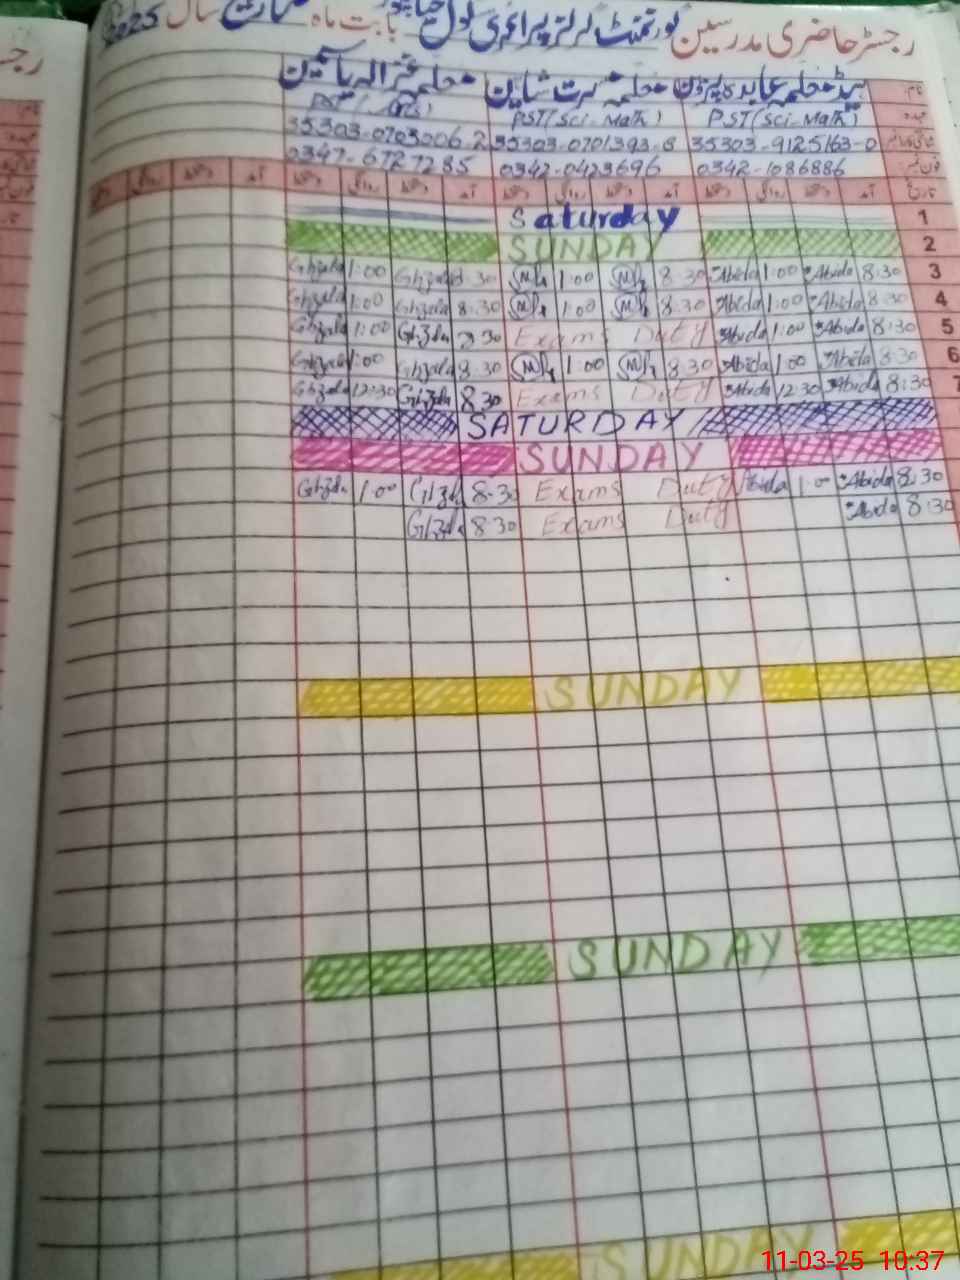 رجسٹر حاضری مدرسین گورنمنٹ گرلز پرائمری سکول بابت ماہ مارچ سال 2025
ہیڈ معلمہ عابدہ پروین معلمہ مسرت شاہین معلمہ غزالہ یاسمین
PST(Sci-Math) PST(Sci-Math)
35303-9125163-0 35303-0701393-8 35303-0703006-2
0342-1086886 0342-0423696 0347-6727285
تاریخ آمد دستخط روانگی دستخط آمد دستخط روانگی دستخط آمد دستخط روانگی دستخط آمد دستخط روانگی دستخط
Saturday 1
SUNDAY 2
Ghzala 1:00 Ghzala 8:30 1:00 8:30 Abida 1:00 Abida 8:30 3
Ghzala 1:00 Ghzala 8:30 1:00 8:30 Abida 1:00 Abida 8:30 4
Ghzala 1:00 Ghzala 8:30 Exams Duty Abida 1:00 Abida 8:30 5
Ghzala 1:00 Ghzala 8:30 1:00 8:30 Abida 1:00 Abida 8:30 6
Ghzala 12:30 Ghzala 8:30 Exams Duty Abida 12:30 Abida 8:30 7
SATURDAY
SUNDAY
Ghzala 1:00 Ghzala 8:30 Exams Duty Abida 1:00 Abida 8:30
Ghzala 8:30 Exams Duty Abida 8:30
SUNDAY
SUNDAY
SUNDAY
11-03-25 10:37